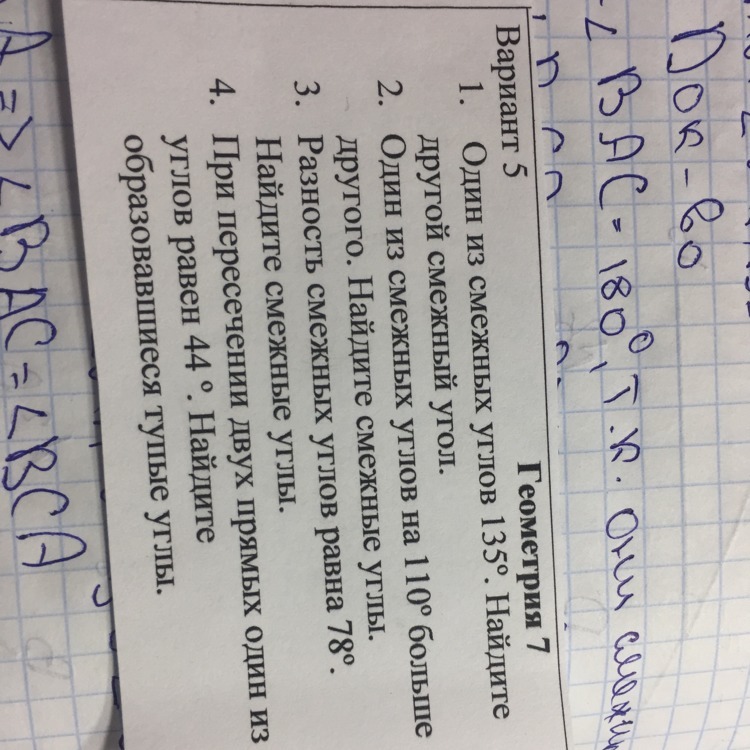 Док-во
∠ BAC = 180°, т.к. они
Геометрия 7
Вариант 5
1. Один из смежных углов 135º. Найдите
другой смежный угол.
2. Один из смежных углов на 110º больше
другого. Найдите смежные углы.
3. Разность смежных углов равна 78º.
Найдите смежные углы.
4. При пересечении двух прямых один из
углов равен 44 º. Найдите
образовавшиеся тупые углы.
A => ∠BAC = ∠BCA